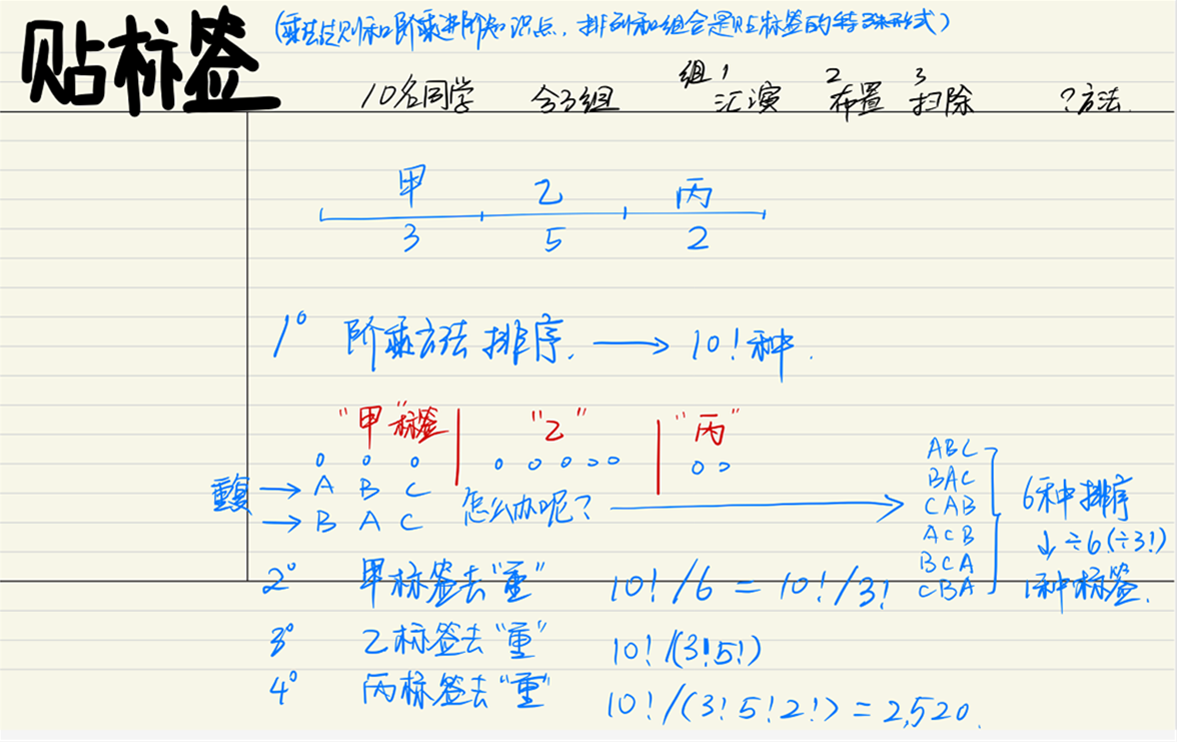 贴标签
(乘法法则和阶乘进阶知识点,排列和组合是贴标签的特殊形式)
10名同学 分3组 组1汇演 2布置 3扫除 ?方法.
甲 乙 丙
3 5 2
1° 阶乘方法 排序. → 10!种.
"甲"标签 "乙" "丙"
重复 → A B C
→ B A C 怎么办呢?
ABC
BAC
CAB
ACB
BCA
CBA
6种排序
↓÷6(÷3!)
1种标签.
2° 甲标签去"重" 10!/6 = 10!/3!
3° 乙标签去"重" 10!/(3!5!)
4° 丙标签去"重" 10!/(3!5!2!) = 2,520.